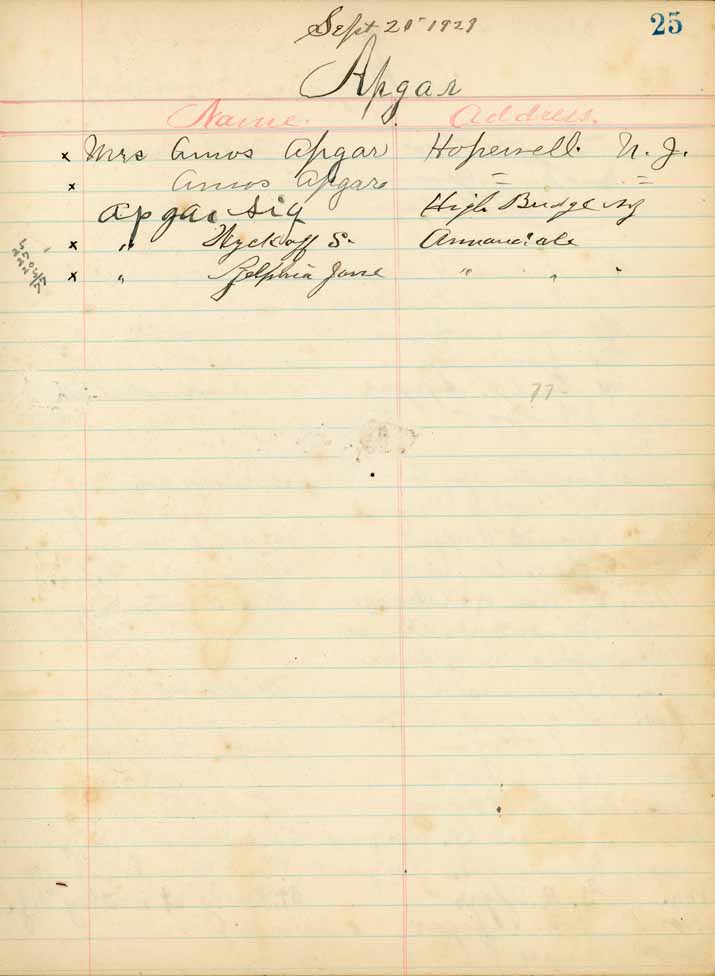 Sept 20 1929
25
Apgar
Name. Address.
x Mrs Amos Apgar Hopewell. N. J.
x Amos Apgar = =
Apgar Sig High Bridge NJ
x " Wyckoff S. Annandale
x " Zelphia Jane " " "
25
27
20
5/7
77
77